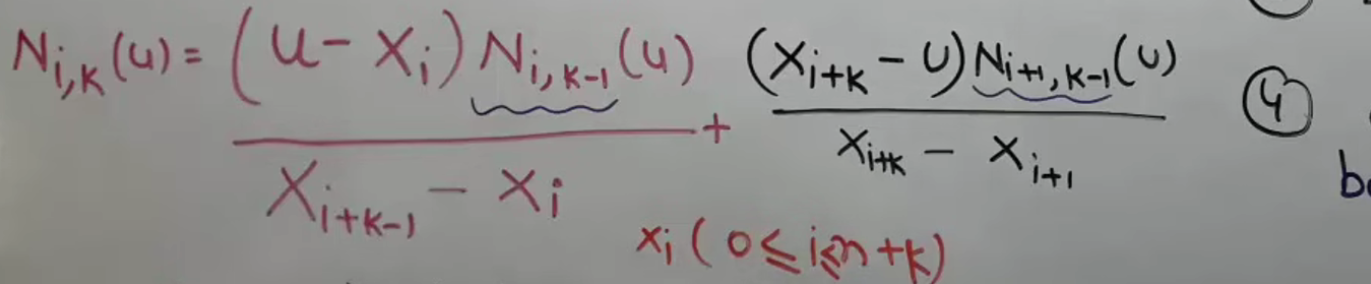 N_{i,k}(u) = (u - x_i) N_{i,k-1}(u) / (x_{i+k-1} - x_i) + (x_{i+k} - u) N_{i+1,k-1}(u) / (x_{i+k} - x_{i+1}) ④
x_i (0 ≤ i ≤ n+k)